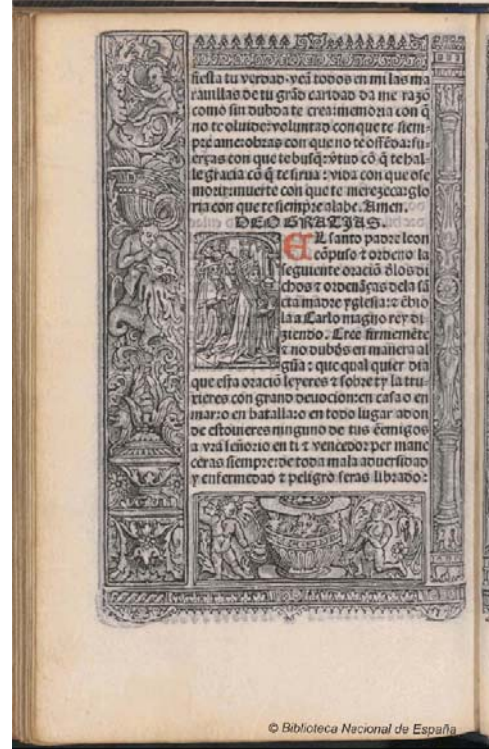 fiesta tu verdad: veā todos en mi las ma
rauillas de tu grād caridad da me razō
como sin dubda te crea: memoria con q̄
no te oluide: voluntad con que te siem-
pre ame: obras con que no te offēda: fu-
erças con que te busq̄: v̄tud cō q̄ te hal-
le gracia cō q̄ te sirua: vida con que ose
morir: muerte con que te merezca: glo
ria con que te siempre alabe. Amen.
DEO GRATIAS.
EL santo padre leon
cōpuso ⁊ ordeno la
seguiente oraciō d̄los di
chos ⁊ ordenāças dela sā
cta madre yglesia: ⁊ ēbio
la a Carlo magno rey di
ziendo. Cree firmemēte
⁊ no dubdes en manera al
gūa: que qual quier dia
que esta oraciō leyeres ⁊ sobre ty la tru-
xieres con grand deuocion: en casa o en
mar: o en batalla: o en todo lugar adon
de estouieres ninguno de tus ēemigos
a vra señorio en ti ⁊ vencedor per mane
ceras siempre: de toda mala aduersidad
y enfermedad ⁊ peligro seras librado:
© Biblioteca Nacional de España